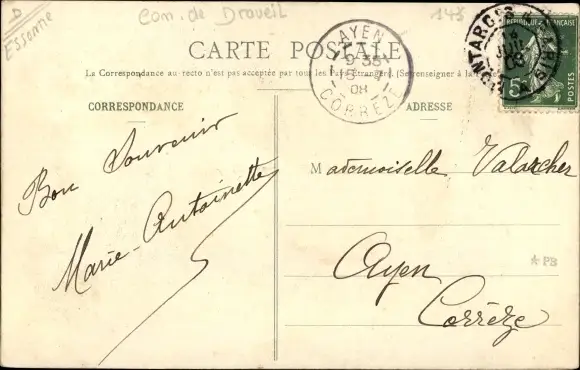 D
Essonne
Com. de Draveil
148
CARTE POSTALE
La Correspondance au recto n'est pas acceptée par tous les Pays Etrangers. (Se renseigner à la
CORRESPONDANCE
ADRESSE
AYEN
9 35
15
08
CORRÈZE
MONTARGIS A PARIS
JUIL
08
RÉPUBLIQUE FRANÇAISE
5
POSTES
Bon Souvenir
Marie-Antoinette
Mademoiselle
Ayen
Corrèze
*PB